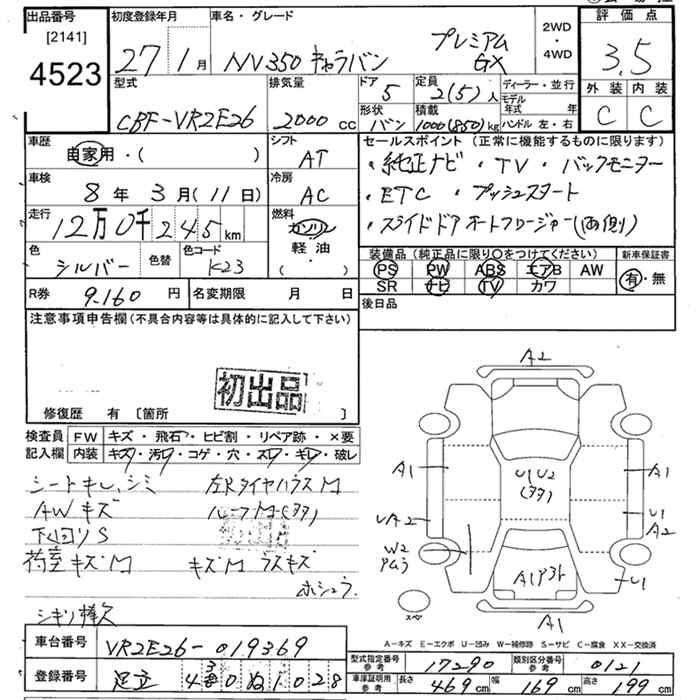 出品番号 初度登録年月 車名・グレード 2WD・4WD 評価点
[2141]
4523 27年1月 NV350 キャラバン プレミアム GX 3.5
外装 内装
C C
型式 排気量 ドア 定員 ディーラー・並行
CBF-VR2E26 2000 CC 5 2(5)人 モデル年式 年
形状 積載 ハンドル 左・右
バン 1000(850)kg
車歴 シフト セールスポイント (正常に機能するものに限ります)
自家用・( ) AT ・純正ナビ ・TV ・バックモニター
車検 冷房 ・ETC ・プッシュスタート
8年3月(11日) AC ・スライドドアオートクロージャー(両側)
走行 燃料
12万0千245km ガソリン
軽・油
( )
色 色替 色コード 装備品 (純正品に限り○をつけてください) 新車保証書
シルバー K23 PS PW ABS エアB AW 有・無
SR ナビ TV カワ
R券 9.160円 名変期限 月 日 後日品
注意事項申告欄 (不具合内容等は具体的に記入して下さい)
初出品
修復歴 有 [箇所 ]
検査員記入欄 FW キズ・飛石・ヒビ割・リペア跡・×要
内装 キズ・汚レ・コゲ・穴・スレ・キレ・破レ
シートキレ、シミ 左Rタイヤハウス M
AWキズ ルーフM(多)
下回りS
荷室キズM キズM ラスキズ
シキリ棒欠
A2
A1 U1U2 (多) A1
UA2 U1 A2
W2
A1 U1
スペア A1
A-キズ E-エクボ U-凹み W-補修跡 S-サビ C-腐食 XX-交換済
車台番号 VR2E26-019369
型式指定番号 参考 17290 類別区分番号 参考 0121
登録番号 足立
車庫証明用 参考 長さ 469cm 幅 169cm 高さ 199cm